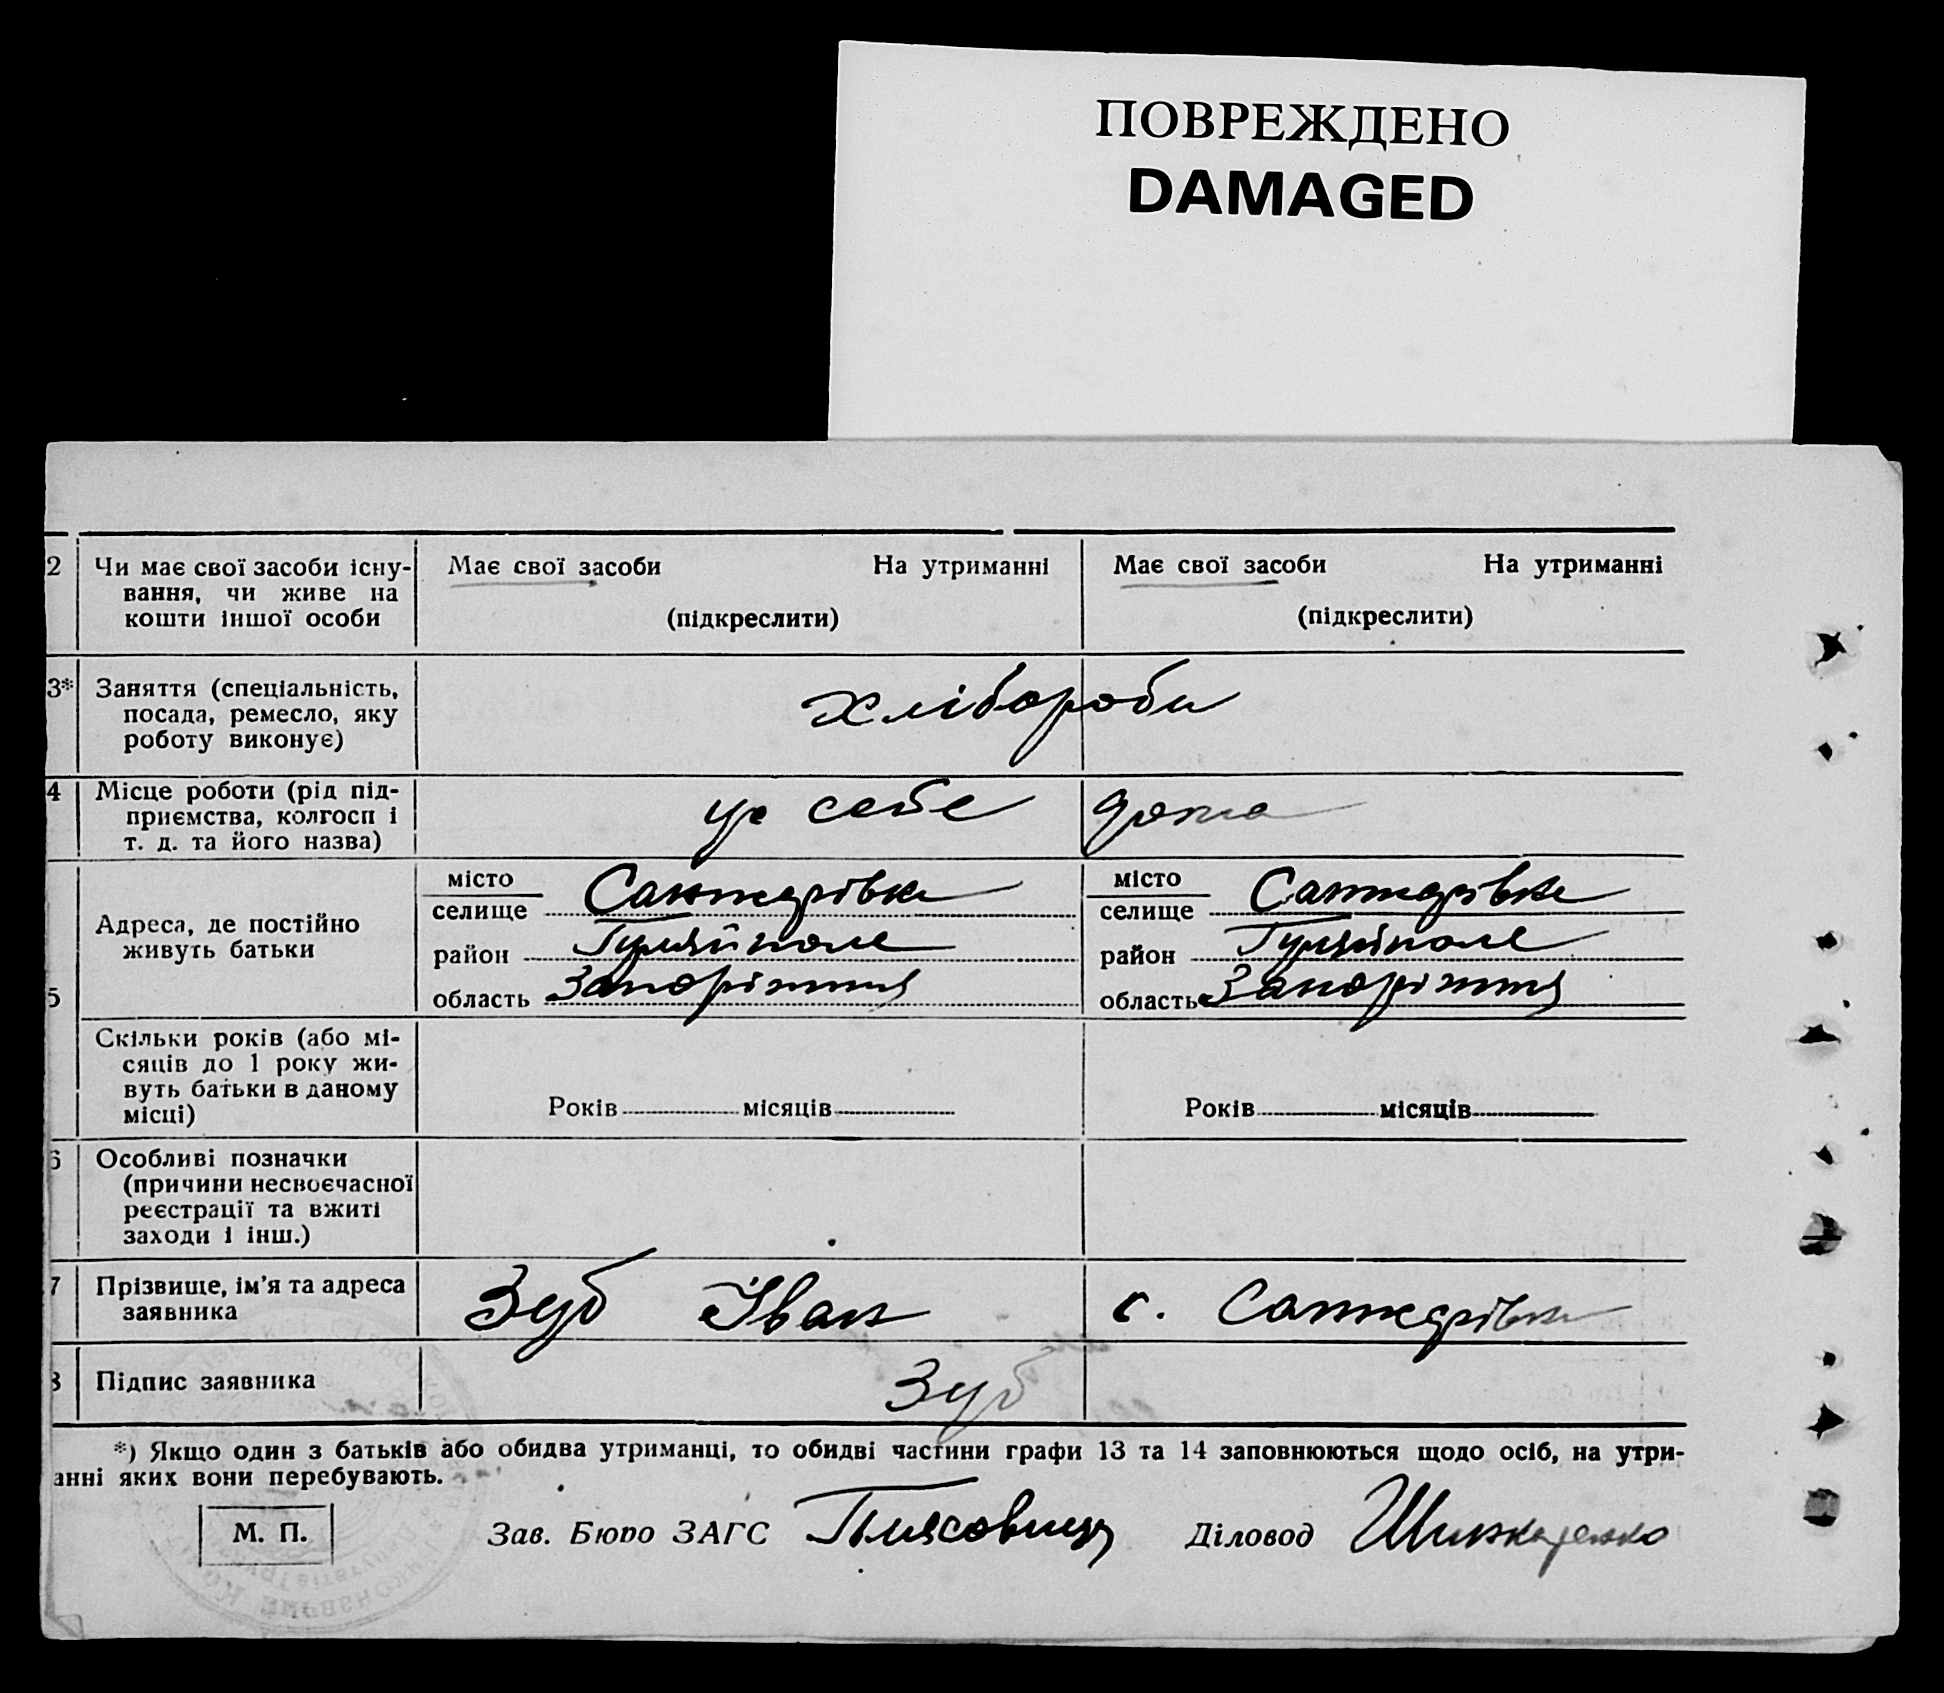 ПОВРЕЖДЕНО
DAMAGED
2 Чи має свої засоби існу-
вання, чи живе на
кошти іншої особи
Має свої засоби На утриманні
(підкреслити)
Має свої засоби На утриманні
(підкреслити)
3* Заняття (спеціальність,
посада, ремесло, яку
роботу виконує)
хлібороби
4 Місце роботи (рід під-
приємства, колгосп і
т. д. та його назва)
у себе дома
5 Адреса, де постійно
живуть батьки
місто
селище Санжарівка
район Гуляйполе
область Запоріжжя
місто
селище Санжарівка
район Гуляйполе
область Запоріжжя
Скільки років (або мі-
сяців до 1 року жи-
вуть батьки в даному
місці)
Років місяців
Років місяців
6 Особливі позначки
(причини несвоєчасної
реєстрації та вжиті
заходи і інш.)
7 Прізвище, ім'я та адреса
заявника
Зуб Іван с. Санжарівка
8 Підпис заявника
Зуб
*) Якщо один з батьків або обидва утриманці, то обидві частини графи 13 та 14 заповнюються щодо осіб, на утри-
анні яких вони перебувають.
М. П. Зав. Бюро ЗАГС Діловод